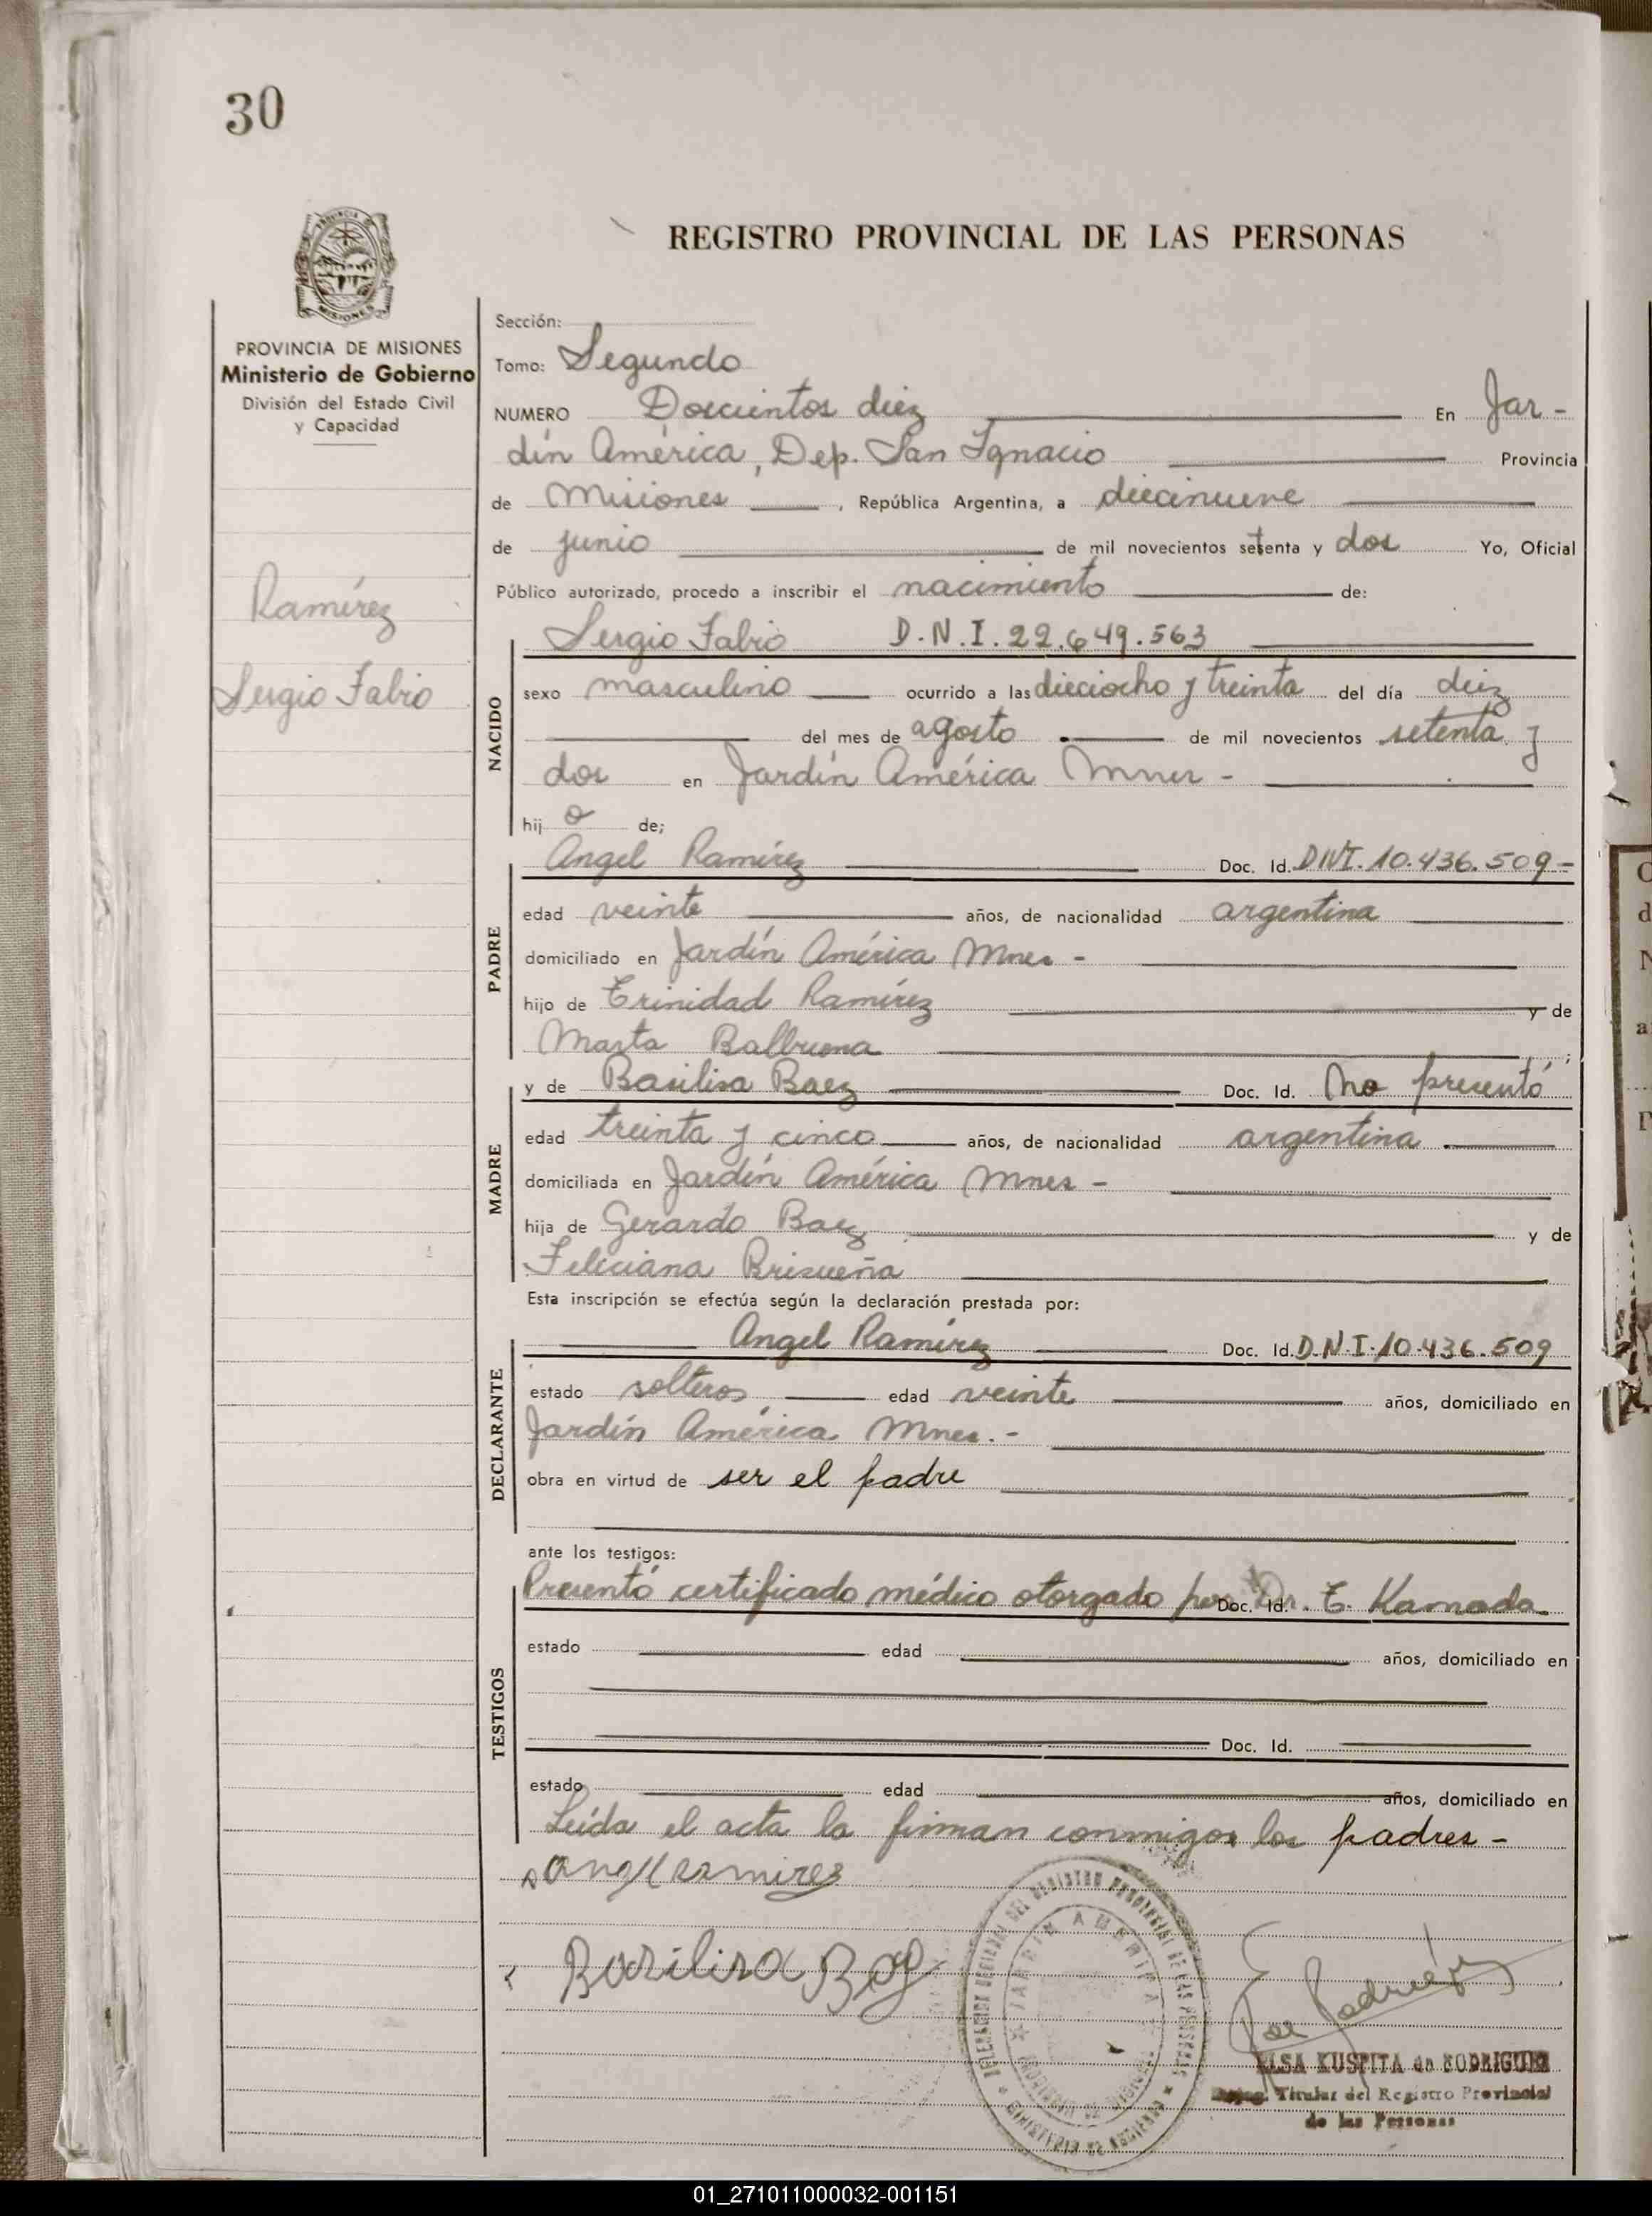 30
REGISTRO PROVINCIAL DE LAS PERSONAS
PROVINCIA DE MISIONES
Ministerio de Gobierno
División del Estado Civil
y Capacidad
Ramírez
Sergio Fabio
Sección:
Tomo: Segundo
NUMERO Doscientos diez En Jar-
dín América, Dep. San Ignacio Provincia
de Misiones, República Argentina, a diecinueve
de junio de mil novecientos setenta y dos Yo, Oficial
Público autorizado, procedo a inscribir el nacimiento de:
Sergio Fabio D.N.I. 22.649.563
NACIDO
sexo masculino ocurrido a las dieciocho y treinta del día diez
del mes de agosto de mil novecientos setenta y
dos en Jardín América Mnes -
hij o de;
Angel Ramírez Doc. Id. DNI. 10.436.509 -
PADRE
edad veinte años, de nacionalidad argentina
domiciliado en Jardín América Mnes -
hijo de Trinidad Ramírez y de
Marta Balbuena ;
y de Basilisa Baez Doc. Id. No presentó
MADRE
edad treinta y cinco años, de nacionalidad argentina
domiciliada en Jardín América Mnes -
hija de Gerardo Baez y de
Feliciana Brisueña
Esta inscripción se efectúa según la declaración prestada por:
Angel Ramírez Doc. Id. D.N.I. 10.436.509
DECLARANTE
estado solteros edad veinte años, domiciliado en
Jardín América Mnes. -
obra en virtud de ser el padre
ante los testigos:
Presentó certificado médico otorgado por Doc. Id. Dr. T. Kamada
TESTIGOS
estado edad años, domiciliado en
Doc. Id.
estado edad años, domiciliado en
Leída el acta la firman conmigo los padres -
Angel Ramirez
Basilisa Baez
DELEGACION SECCIONAL DEL REGISTRO PROVINCIAL DE LAS PERSONAS
JARDIN AMERICA
ELSA KUSPITA de RODRIGUEZ
Titular del Registro Provincial
de las Personas
01_271011000032-001151